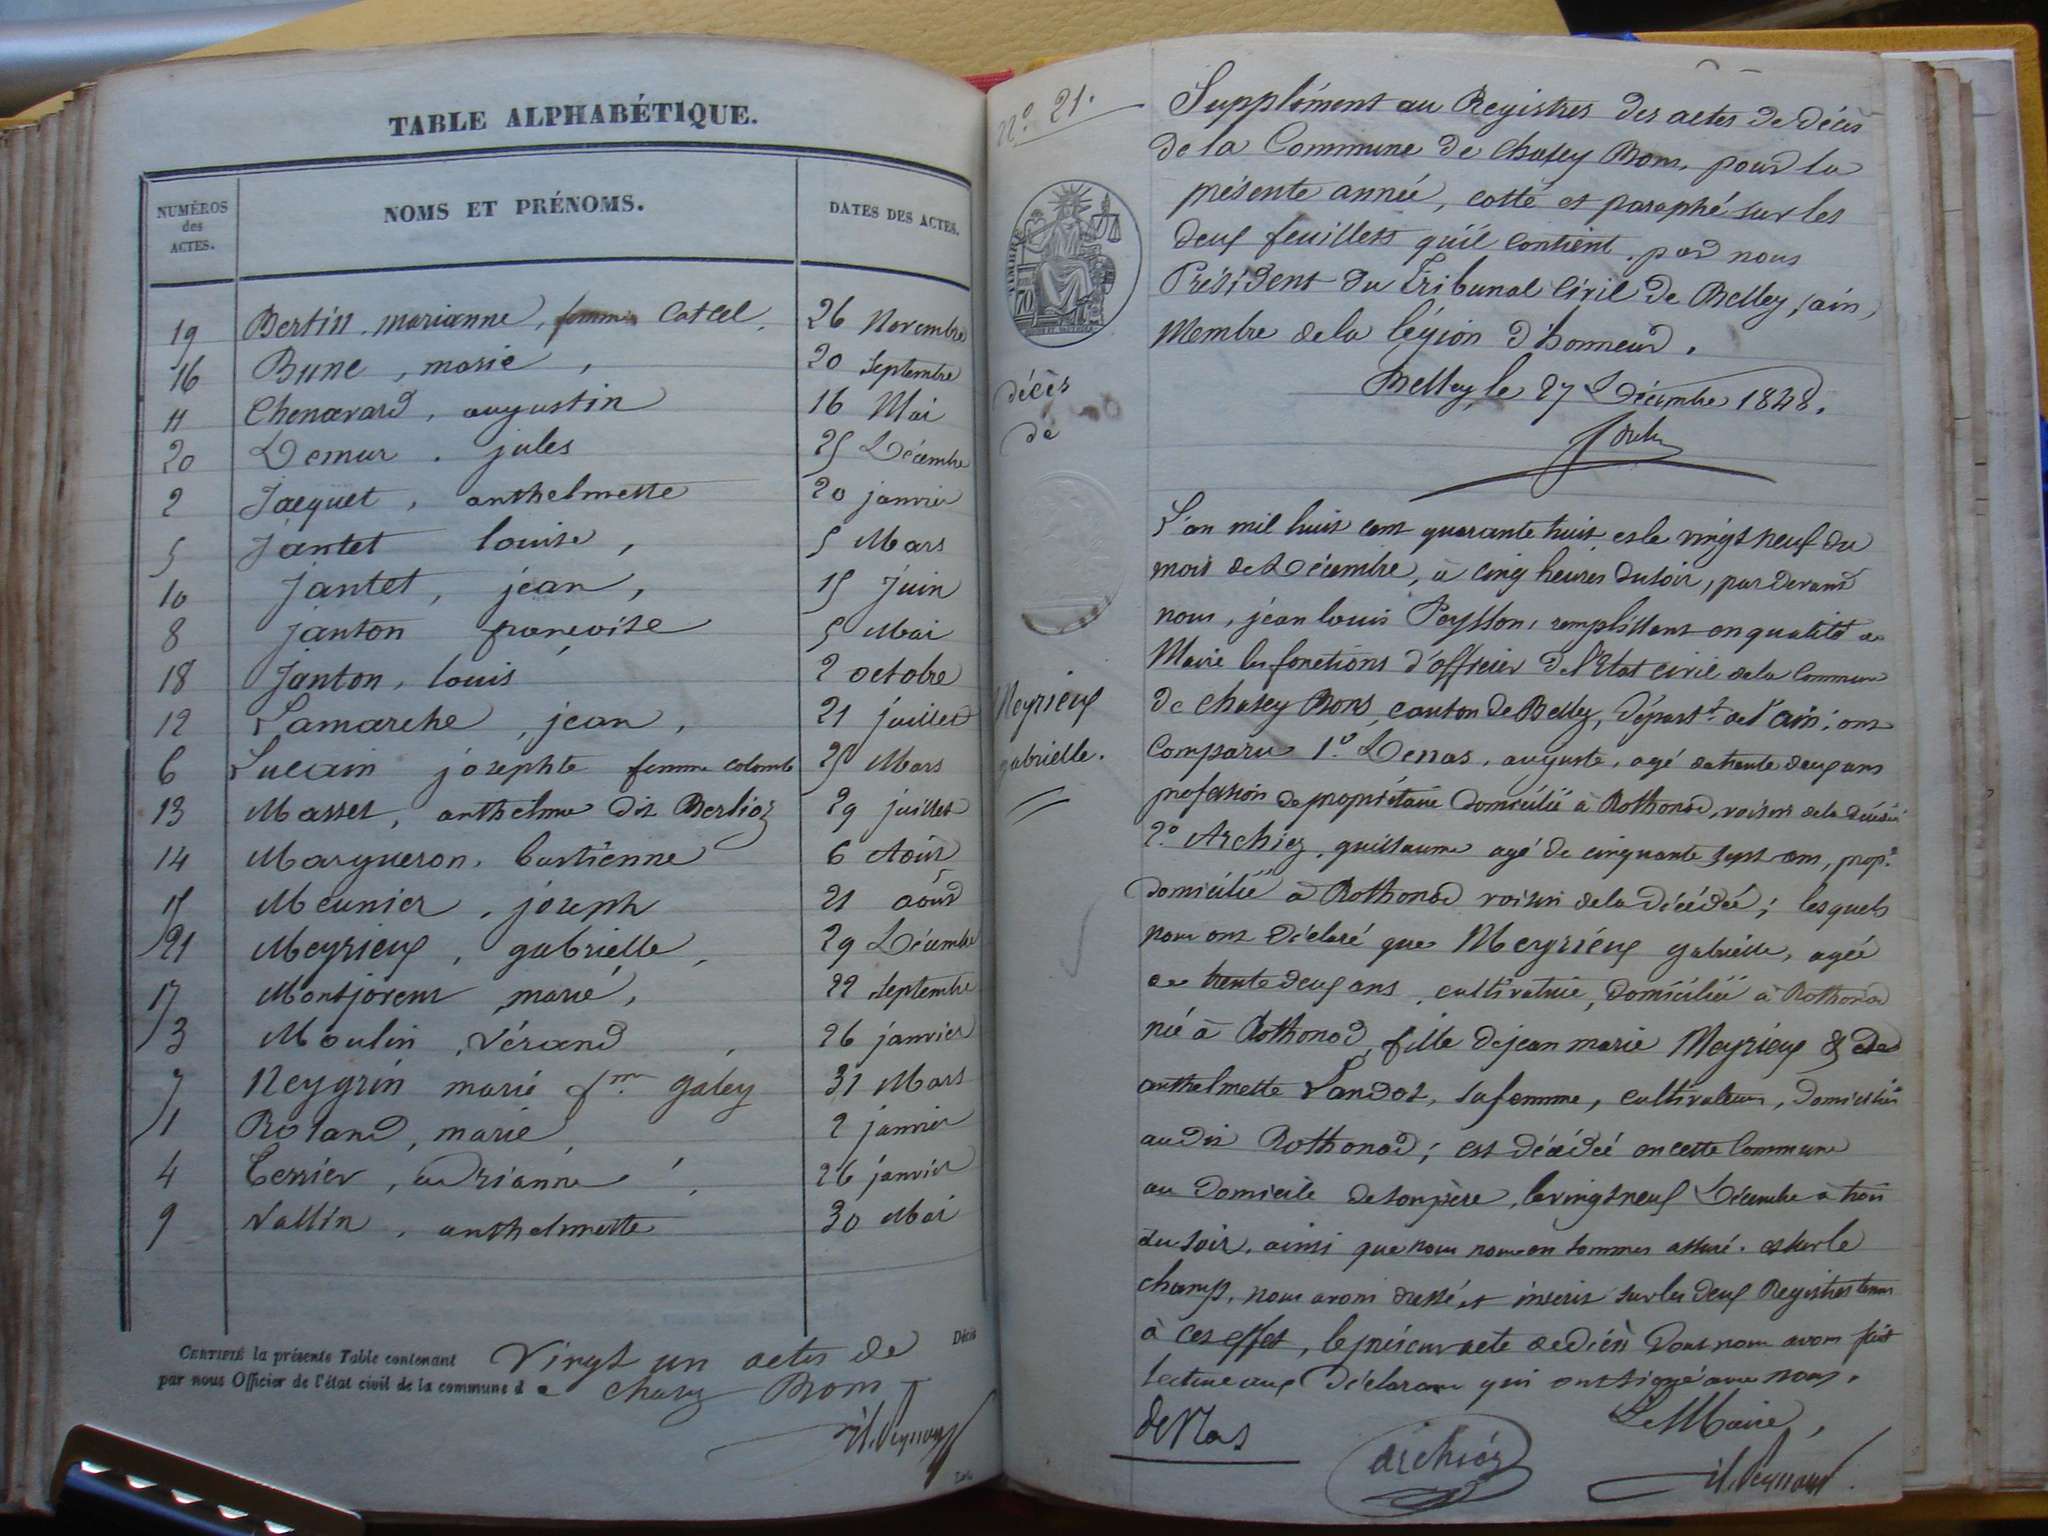 TABLE ALPHABÉTIQUE.
NUMÉROS des ACTES. NOMS ET PRÉNOMS. DATES DES ACTES.
19 Bertin, marianne, femme Cattel, 26 Novembre
16 Bune, marie, 20 Septembre
11 Chenavard, augustin 16 Mai
20 Demur. jules 25 Décembre
2 Jacquet, anthelmette 20 janvier
5 Jantet louise, 5 Mars
10 Jantet, jean, 15 Juin
8 Janton francoise 5 Mai
18 Janton, louis 2 octobre
12 Lamarche, jean, 21 juillet
6 Lucain josephte femme colomb 25 Mars
13 Masset, anthelme dit Berlioz 29 juillet
14 Margueron, bastienne 6 Août
15 Meunier, joseph 21 août
21 Meyrieux, gabrielle, 29 Décembre
17 Montjorent marie, 22 Septembre
3 Moulin, vérand, 26 janvier
7 Neygrin marie fme galey 31 Mars
1 Roland, marie 2 janvier
4 Terrier, adrianne, 26 janvier
9 Vallin, anthelmette 30 Mai
CERTIFIÉ la présente Table contenant Vingt un actes de Décès
par nous Officier de l'état civil de la commune de Chazey Bons
nº 21.
TIMBRE
70
décès
de
Meyrieux
gabrielle.
Supplément au Registres des actes de décès
de la Commune de Chazey Bons, pour la
présente année, cotté et paraphé sur les
deux feuillets qu'il contient, par nous
Président du Tribunal Civil de Belley, ain,
Membre de la légion d'honneur.
Belley, le 27 Décembre 1848.
L'an mil huit cent quarante huit et le vingt neuf du
mois de Décembre, à cinq heures du soir, par devant
nous, jean louis Peysson, remplissant en qualité de
Maire les fonctions d'officier de l'Etat civil de la Commune
de Chazey Bons, canton de Belley, départt de l'ain; ont
comparu 1º Denas, auguste, agé de trente deux ans
profession de propriétaire domicilié à Rothonod, voisin de la décédée
2º Archiez, guillaume agé de cinquante sept ans, propre
domicilié à Rothonod voisin de la décédée; lesquels
nous ont déclaré que Meyrieux gabrielle, agée
de trente deux ans, cultivatrice, domiciliée à Rothonod
née à Rothonod, fille de jean marie Meyrieux & de
anthelmette Landoz, sa femme, cultivateurs, domiciliés
audit Rothonod; est décédée en cette Commune
au domicile de son père, le vingt neuf Décembre à trois
du soir. ainsi que nous nous en sommes assuré. et sur le
champ, nous avons dressé et inscrit sur les deux Registres tenus
à cet effet, le présent acte de décès dont nous avons fait
lecture aux déclarans qui ont signé avec nous.
Le Maire,
deNas
archiéz
jl. Peysson